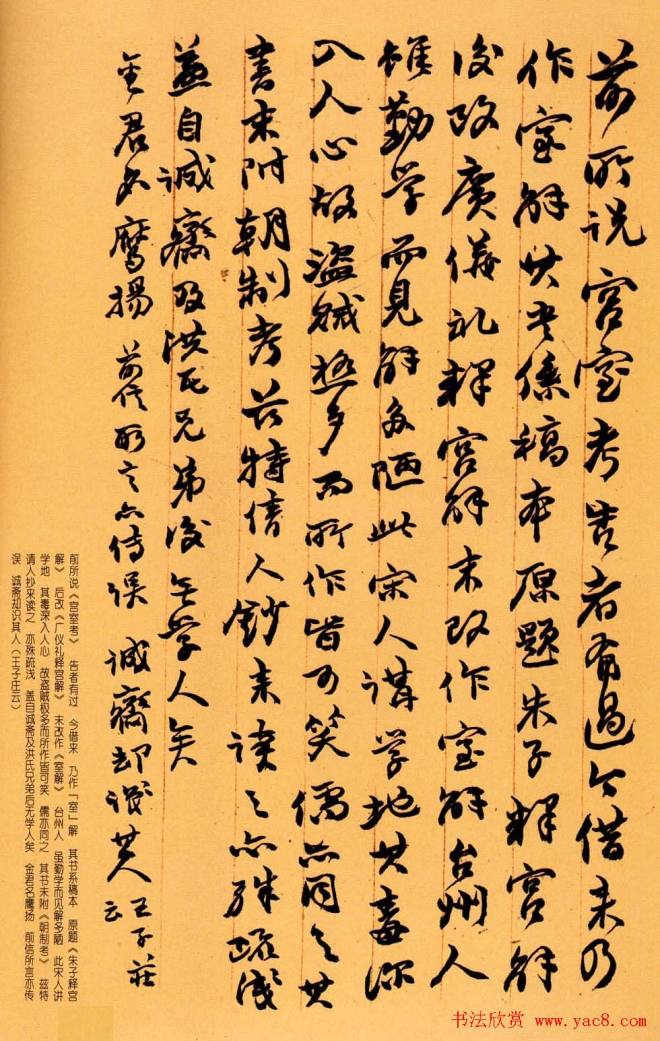 前所说宫室考告者有過今借来乃
作室解其書係稿本原題朱子釋宫解
後改廣儀礼釋宫解末改作室解台州人
雖勤学而見解多陋此宋人講学地其毒深
入人心故盗贼极多而所作皆可笑儒亦同之其
書末附朝制考兹特倩人鈔来读之亦殊疏淺
盖自诚齋及洪氏兄弟後无学人矣
金君名鹰揚 前信所言亦传误 诚齋却识其人王子莊云
前所说《宫室考》 告者有过 今借来 乃作「室」解 其书系稿本 原题《朱子释宫
解》 后改《广仪礼释宫解》 末改作《室解》 台州人 虽勤学而见解多陋 此宋人讲
学地 其毒深入人心 故盗贼极多而所作皆可笑 儒亦同之 其书末附《朝制考》 兹特
请人抄来读之 亦殊疏浅 盖自诚斋及洪氏兄弟后无学人矣 金君名鹰扬 前信所言亦传
误 诚斋却识其人(王子庄云)
书法欣赏 www.yac8.com